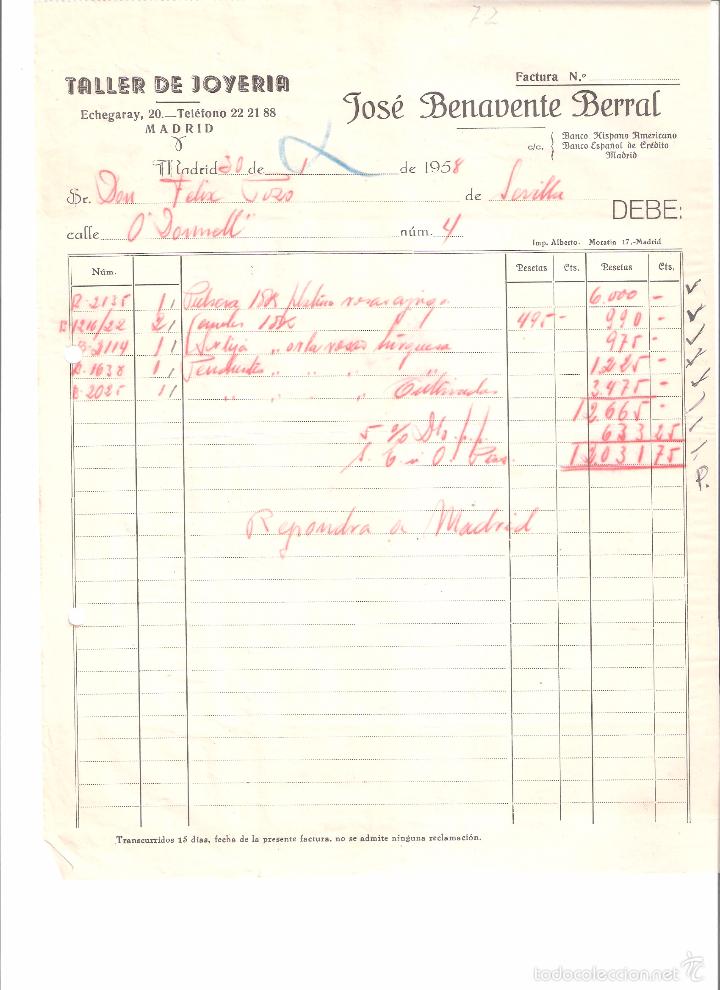 72
TALLER DE JOYERIA
Echegaray, 20.—Teléfono 22 21 88
MADRID
Factura N.º
José Benavente Berral
c/c. Banco Hispano Americano
Banco Español de Crédito
Madrid
Madrid 30 de 1 de 1958
Sr. Don Felix Pozo de Sevilla
calle O'Donnell" núm. 4
DEBE:
Imp. Alberto. Moratín 17.-Madrid
Núm. Pesetas Cts. Pesetas Cts.
R-2135 1 Pulsera 18k platino rosas 6.000 -
1216/22 2 18k 495 - 990 -
B-2114 1 Sortija " orla rosas 975 -
R-1638 1 Pendientes " " " 1225 -
R-2025 1 " " " " Cultivadas 3.475 -
12.665 -
5 % Dto. 633 25
S. E. u O. Ptas. 12.031 75
P.
Repondra a Madrid
Transcurridos 15 días, fecha de la presente factura, no se admite ninguna reclamación.
todocoleccion.net